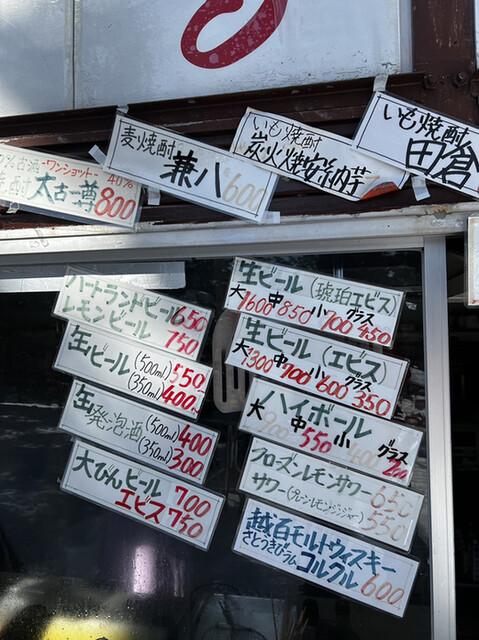 ワンショット 40%
太古の尊 800
麦焼酎
兼八 600
いも焼酎
炭火焼安納芋
いも焼酎
田倉
ハートランドビール 650
レモンビール 750
缶ビール (500ml) 550
(350ml) 400
缶発泡酒 (500ml) 400
(350ml) 300
大びんビール 700
エビス 750
生ビール (琥珀エビス)
大 中 小 グラス
1600 850 700 450
生ビール (エビス)
大 中 小 グラス
1300 700 600 350
ハイボール
大 中 小 グラス
900 550 400 200
フローズンレモンサワー 650
サワー (プレーン・レモン・ジンジャー) 550
越百モルトウィスキー
さとうきびラム コルコル 600